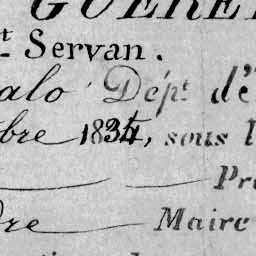 GUERE
t Servan.
alo Dépt. d'
bre 1834, sous l
Pr
dre Maire